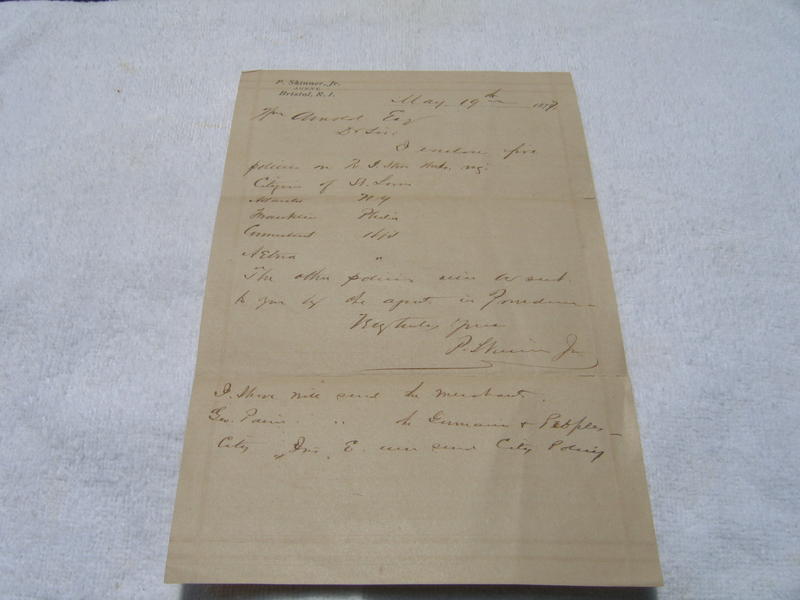 P. Skinner, Jr.
AGENT,
Bristol, R. I.
May 19th 1877
Wm Arnold Esq
Dr Sir
I enclose five
policies on R I
Citizens of St. Louis
Atlantic N Y
Franklin Phila
Connecticut Htfd
AEtna "
The other policies will be sent
to you by the agents in Providence
Very truly yours
P. Skinner Jr
I. Shove will send the Merchants.
Geo. " the Germania & Peoples
City Ins. will send City Policy